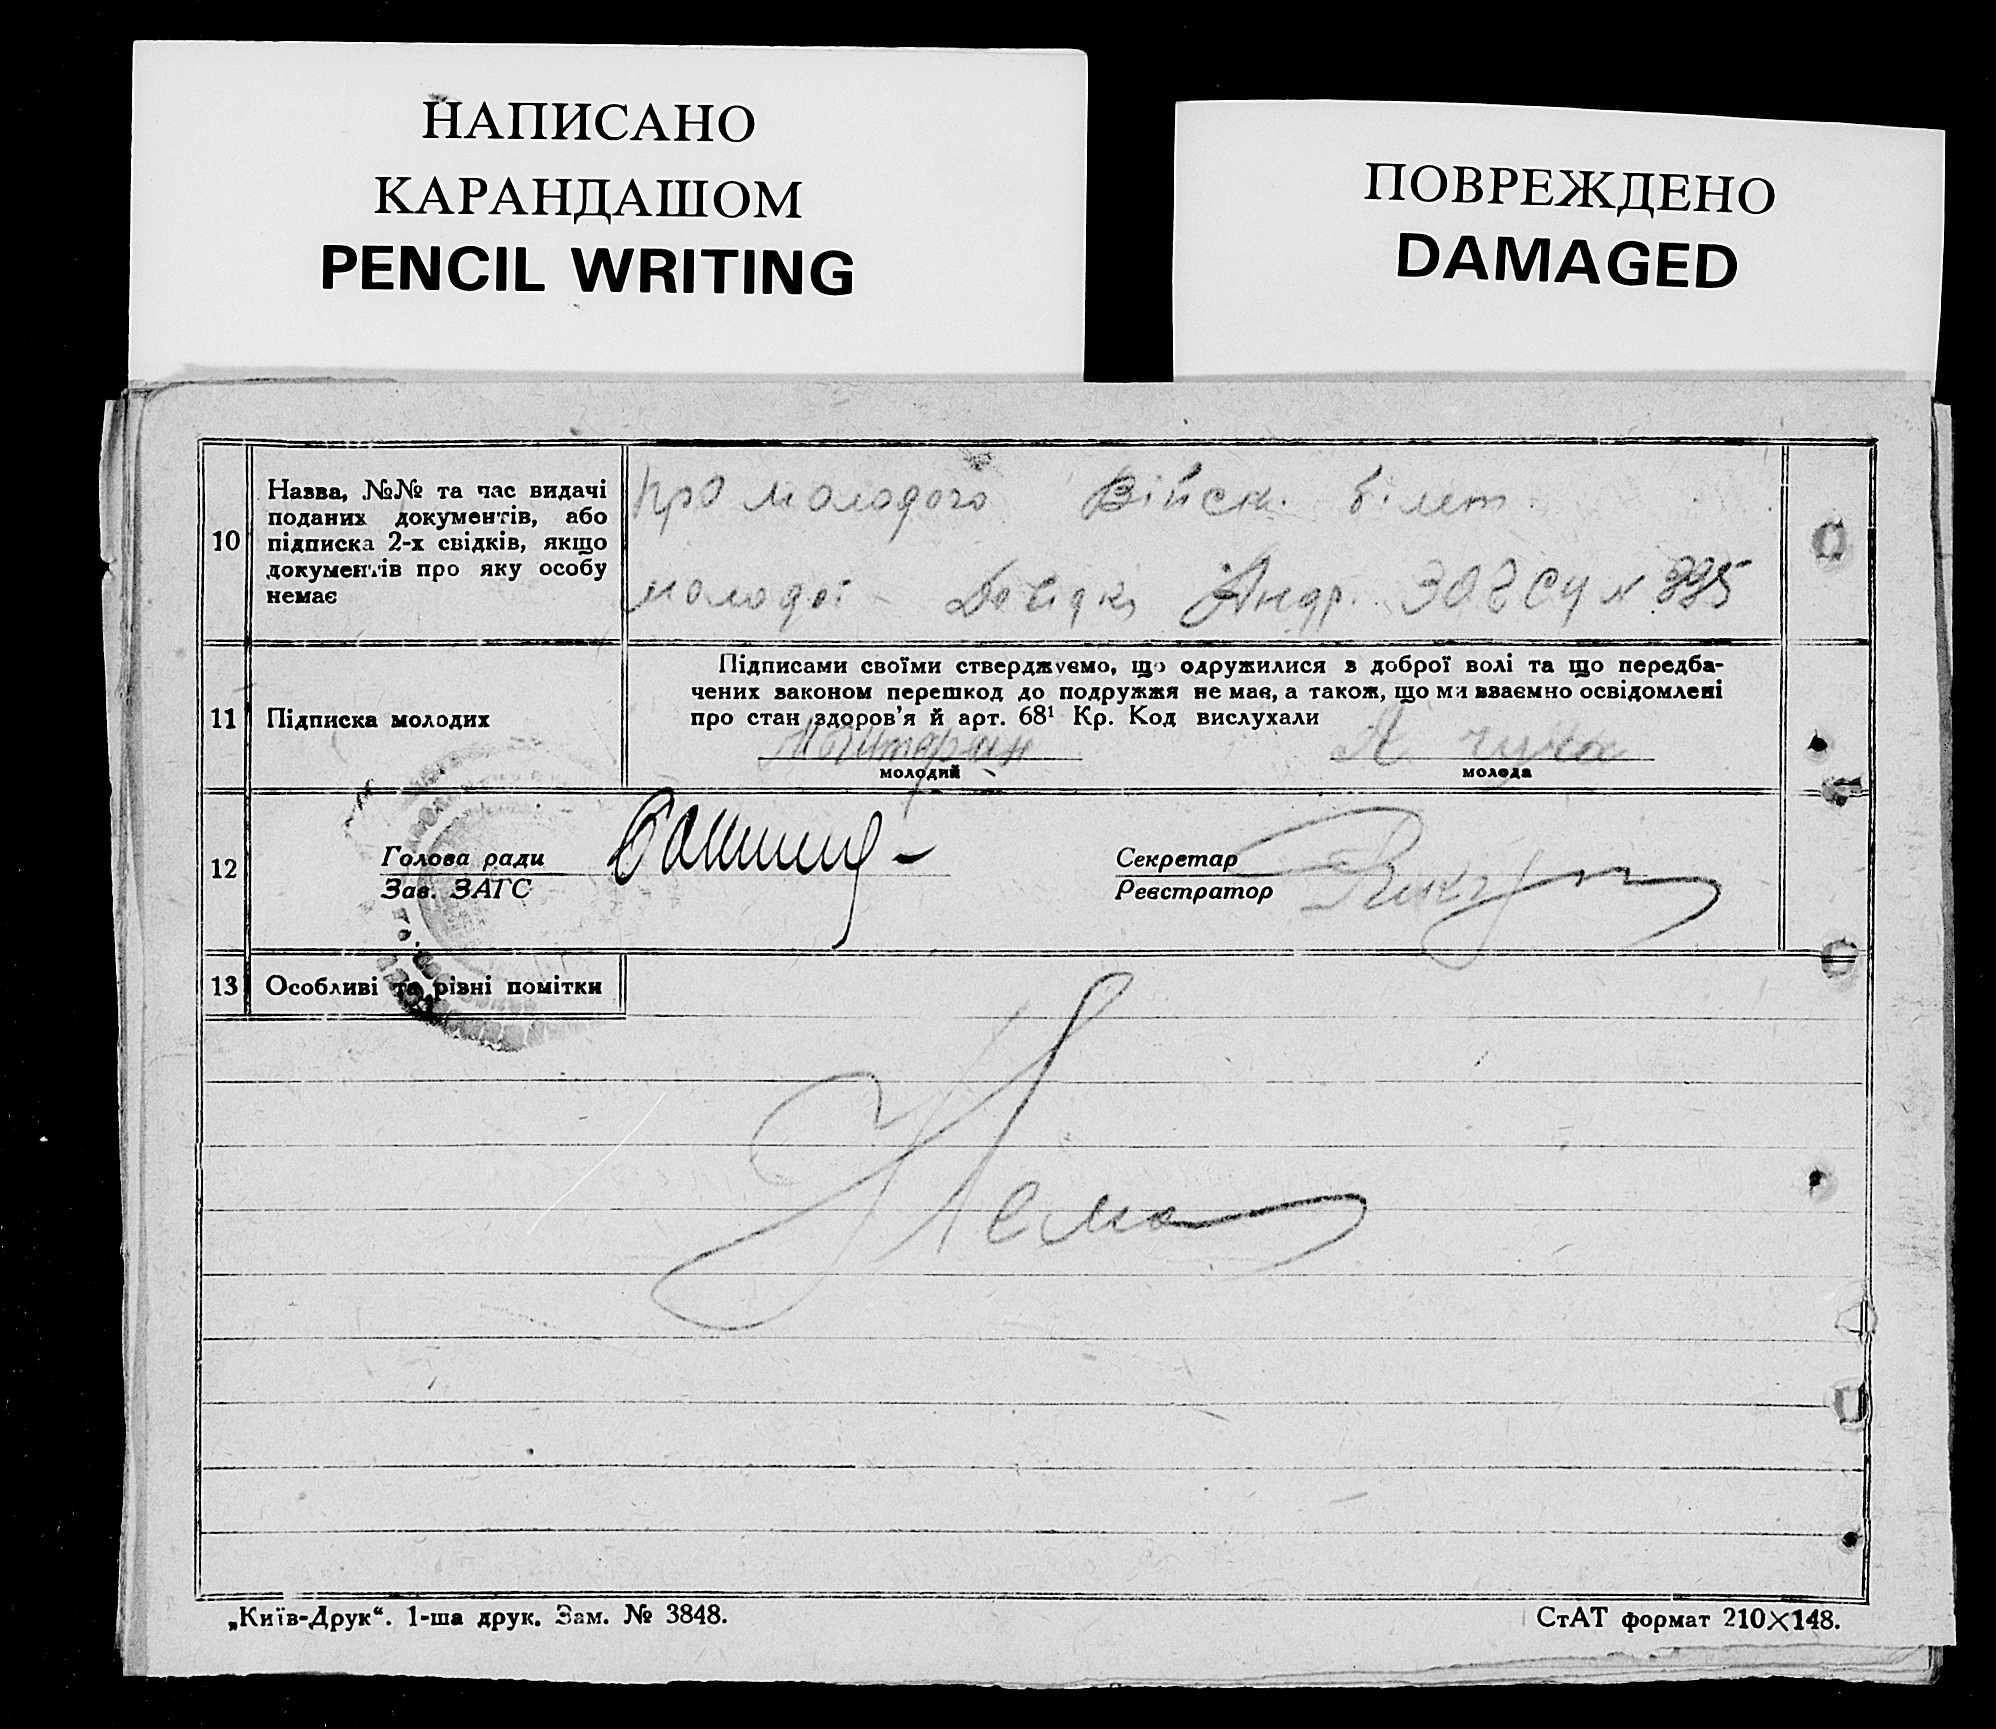 НАПИСАНО
КАРАНДАШОМ
PENCIL WRITING
ПОВРЕЖДЕНО
DAMAGED
10
Назва, №№ та час видачі
поданих документів, або
підписка 2-х свідків, якщо
документів про яку особу
немає
про молодого Військ. білет
молодої - Довідка Андр. № 995
11
Підписка молодих
Підписами своїми стверджуємо, що одружилися з доброї волі та що передба-
чених законом перешкод до подружжя не має, а також, що ми взаємно освідомлені
про стан здоров'я й арт. 68¹ Кр. Код вислухали
молодий
молода
12
Голова ради
Зав. ЗАГС
Секретар
Реєстратор
13
Особливі та різні помітки
Нема
„Київ-Друк“. 1-ша друк. Зам. № 3848.
СтАТ формат 210×148.